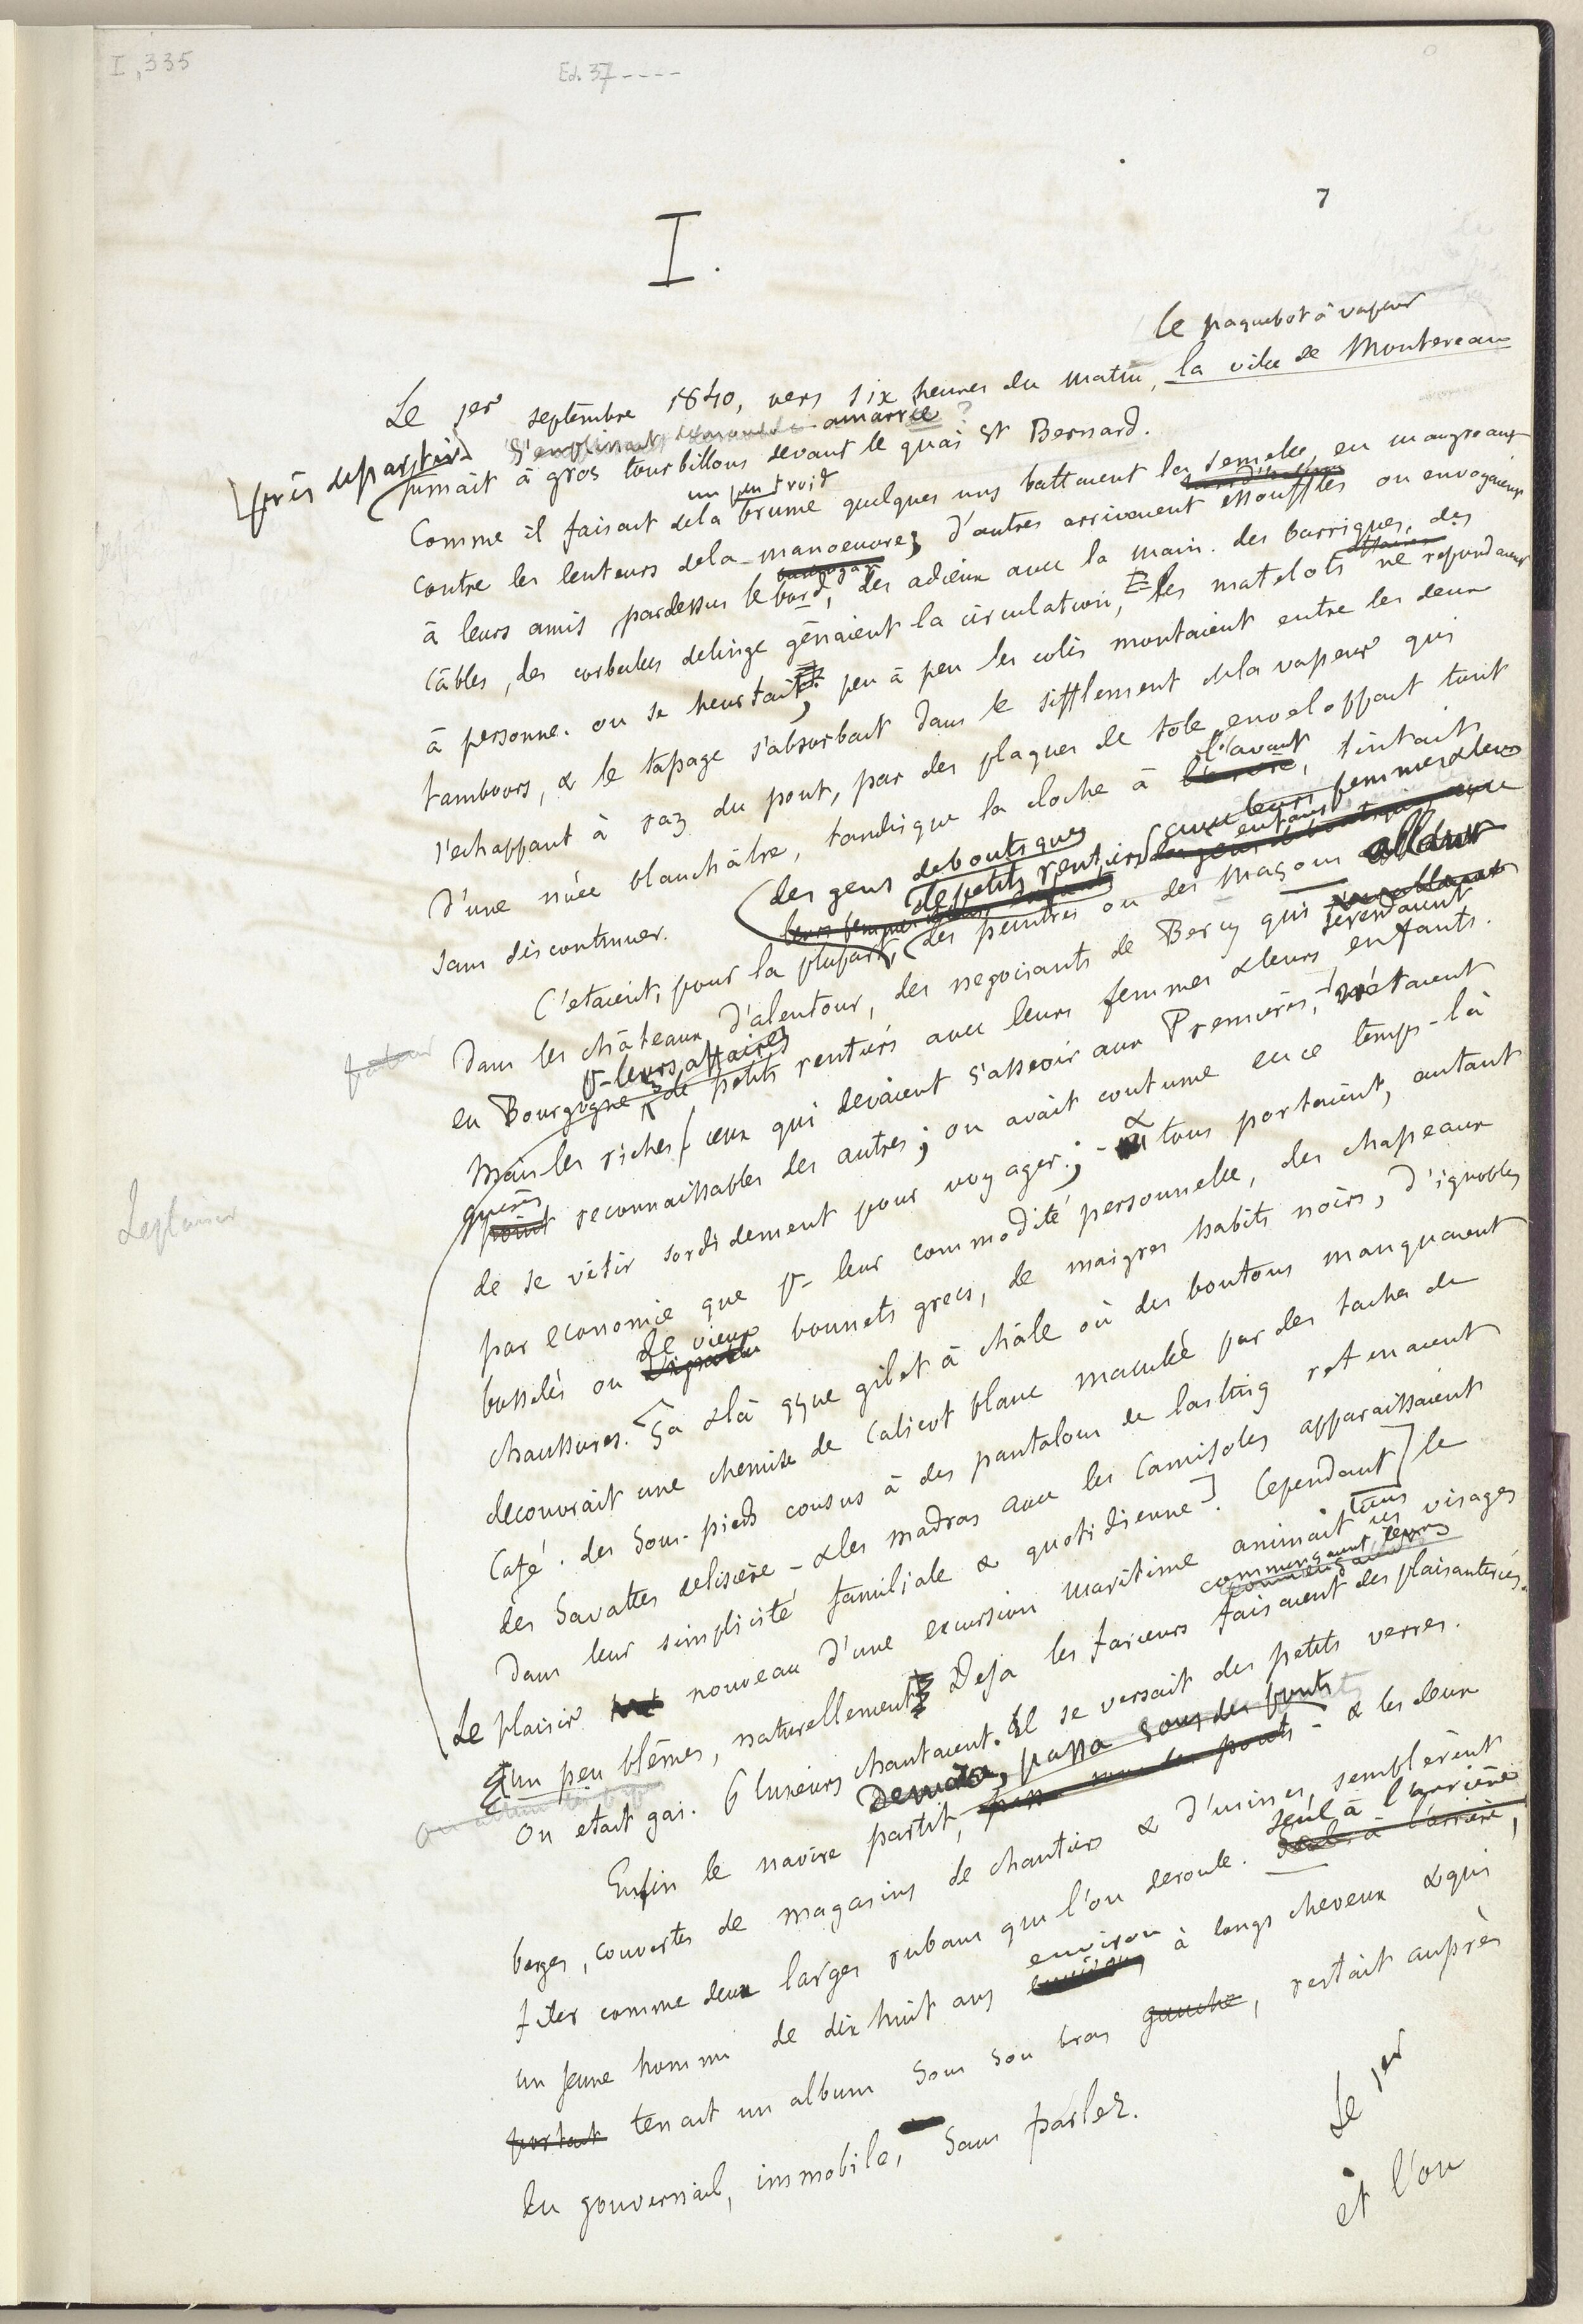 I, 335
Ed. 37 ----
7
I.
le paquebot à vapeur
Le 1er septembre 1840, vers six heures du matin, la ville de Montereau
près de partir amarrée ?
fumait à gros tourbillons devant le quai St Bernard.
un peu froid
Comme il faisait de la brume quelques uns battaient la semelle, en maugréant
contre les lenteurs de la manoeuvre; d'autres arrivaient essoufflés ou envoyaient
à leurs amis pardessus le bord, des adieux avec la main. des barriques, des
câbles, des corbeilles de linge gênaient la circulation, les matelots ne repondaient
à personne. on se heurtait; peu à peu les colis montaient entre les deux
tambours, & le tapage s'absorbait dans le sifflement de la vapeur qui
s'echappant à raz du pont, par des plaques de tole enveloppait tout
d'une nuée blanchâtre, tandisque la cloche à l'avant, tintait
sans discontinuer.
des gens de boutiques
de petits rentiers avec leurs femmes & leurs
enfants
C'etaient, pour la plupart, des peintres ou des maçons allant
dans les châteaux d'alentour, des negociants de Bercy qui se rendaient
en Bourgogne pr leurs affaires de petits rentiers avec leurs femmes & leurs enfants.
Mais les riches, ceux qui devaient s'asseoir aux Premieres, n'étaient
guères
point reconnaissables des autres; on avait coutume en ce temps-là
de se vêtir sordidement pour voyager; - & tous portaient, autant
par economie que pr leur commodité personnelle, des chapeaux
bosselés ou de vieux bonnets grecs, de maigres habits noirs, d'ignobles
chaussures. Ça & là qque gilet à châle où des boutons manquaient
decouvrait une chemise de calicot blanc maculée par des taches de
Café. des Sous-pieds cousus à des pantalons de lasting retenaient
des Savattes de lisière - & les madras avec les Camisoles apparaissaient
Dans leur simplicité familiale & quotidienne]. Cependant] le
Le plaisir nouveau d'une excursion maritime animait tous ces visages
un peu blêmes, naturellement Deja les farceurs commençaient leurs
faisaient des plaisanteries.
On etait gai. Plusieurs chantaient. Il se versait des petits verres.
passa sous des ponts
Enfin le navire partit, - & les deux
berges, couvertes de magasins de chantiers & d'usines, semblèrent
filer comme deux larges rubans que l'on deroule. seul à l'arrière
un jeune homme de dix huit ans environ à longs cheveux & qui
portait tenait un album sous son bras gauche, restait auprès
du gouvernail, immobile, sans parler.
Le plaisir
Le 1er
et l'on